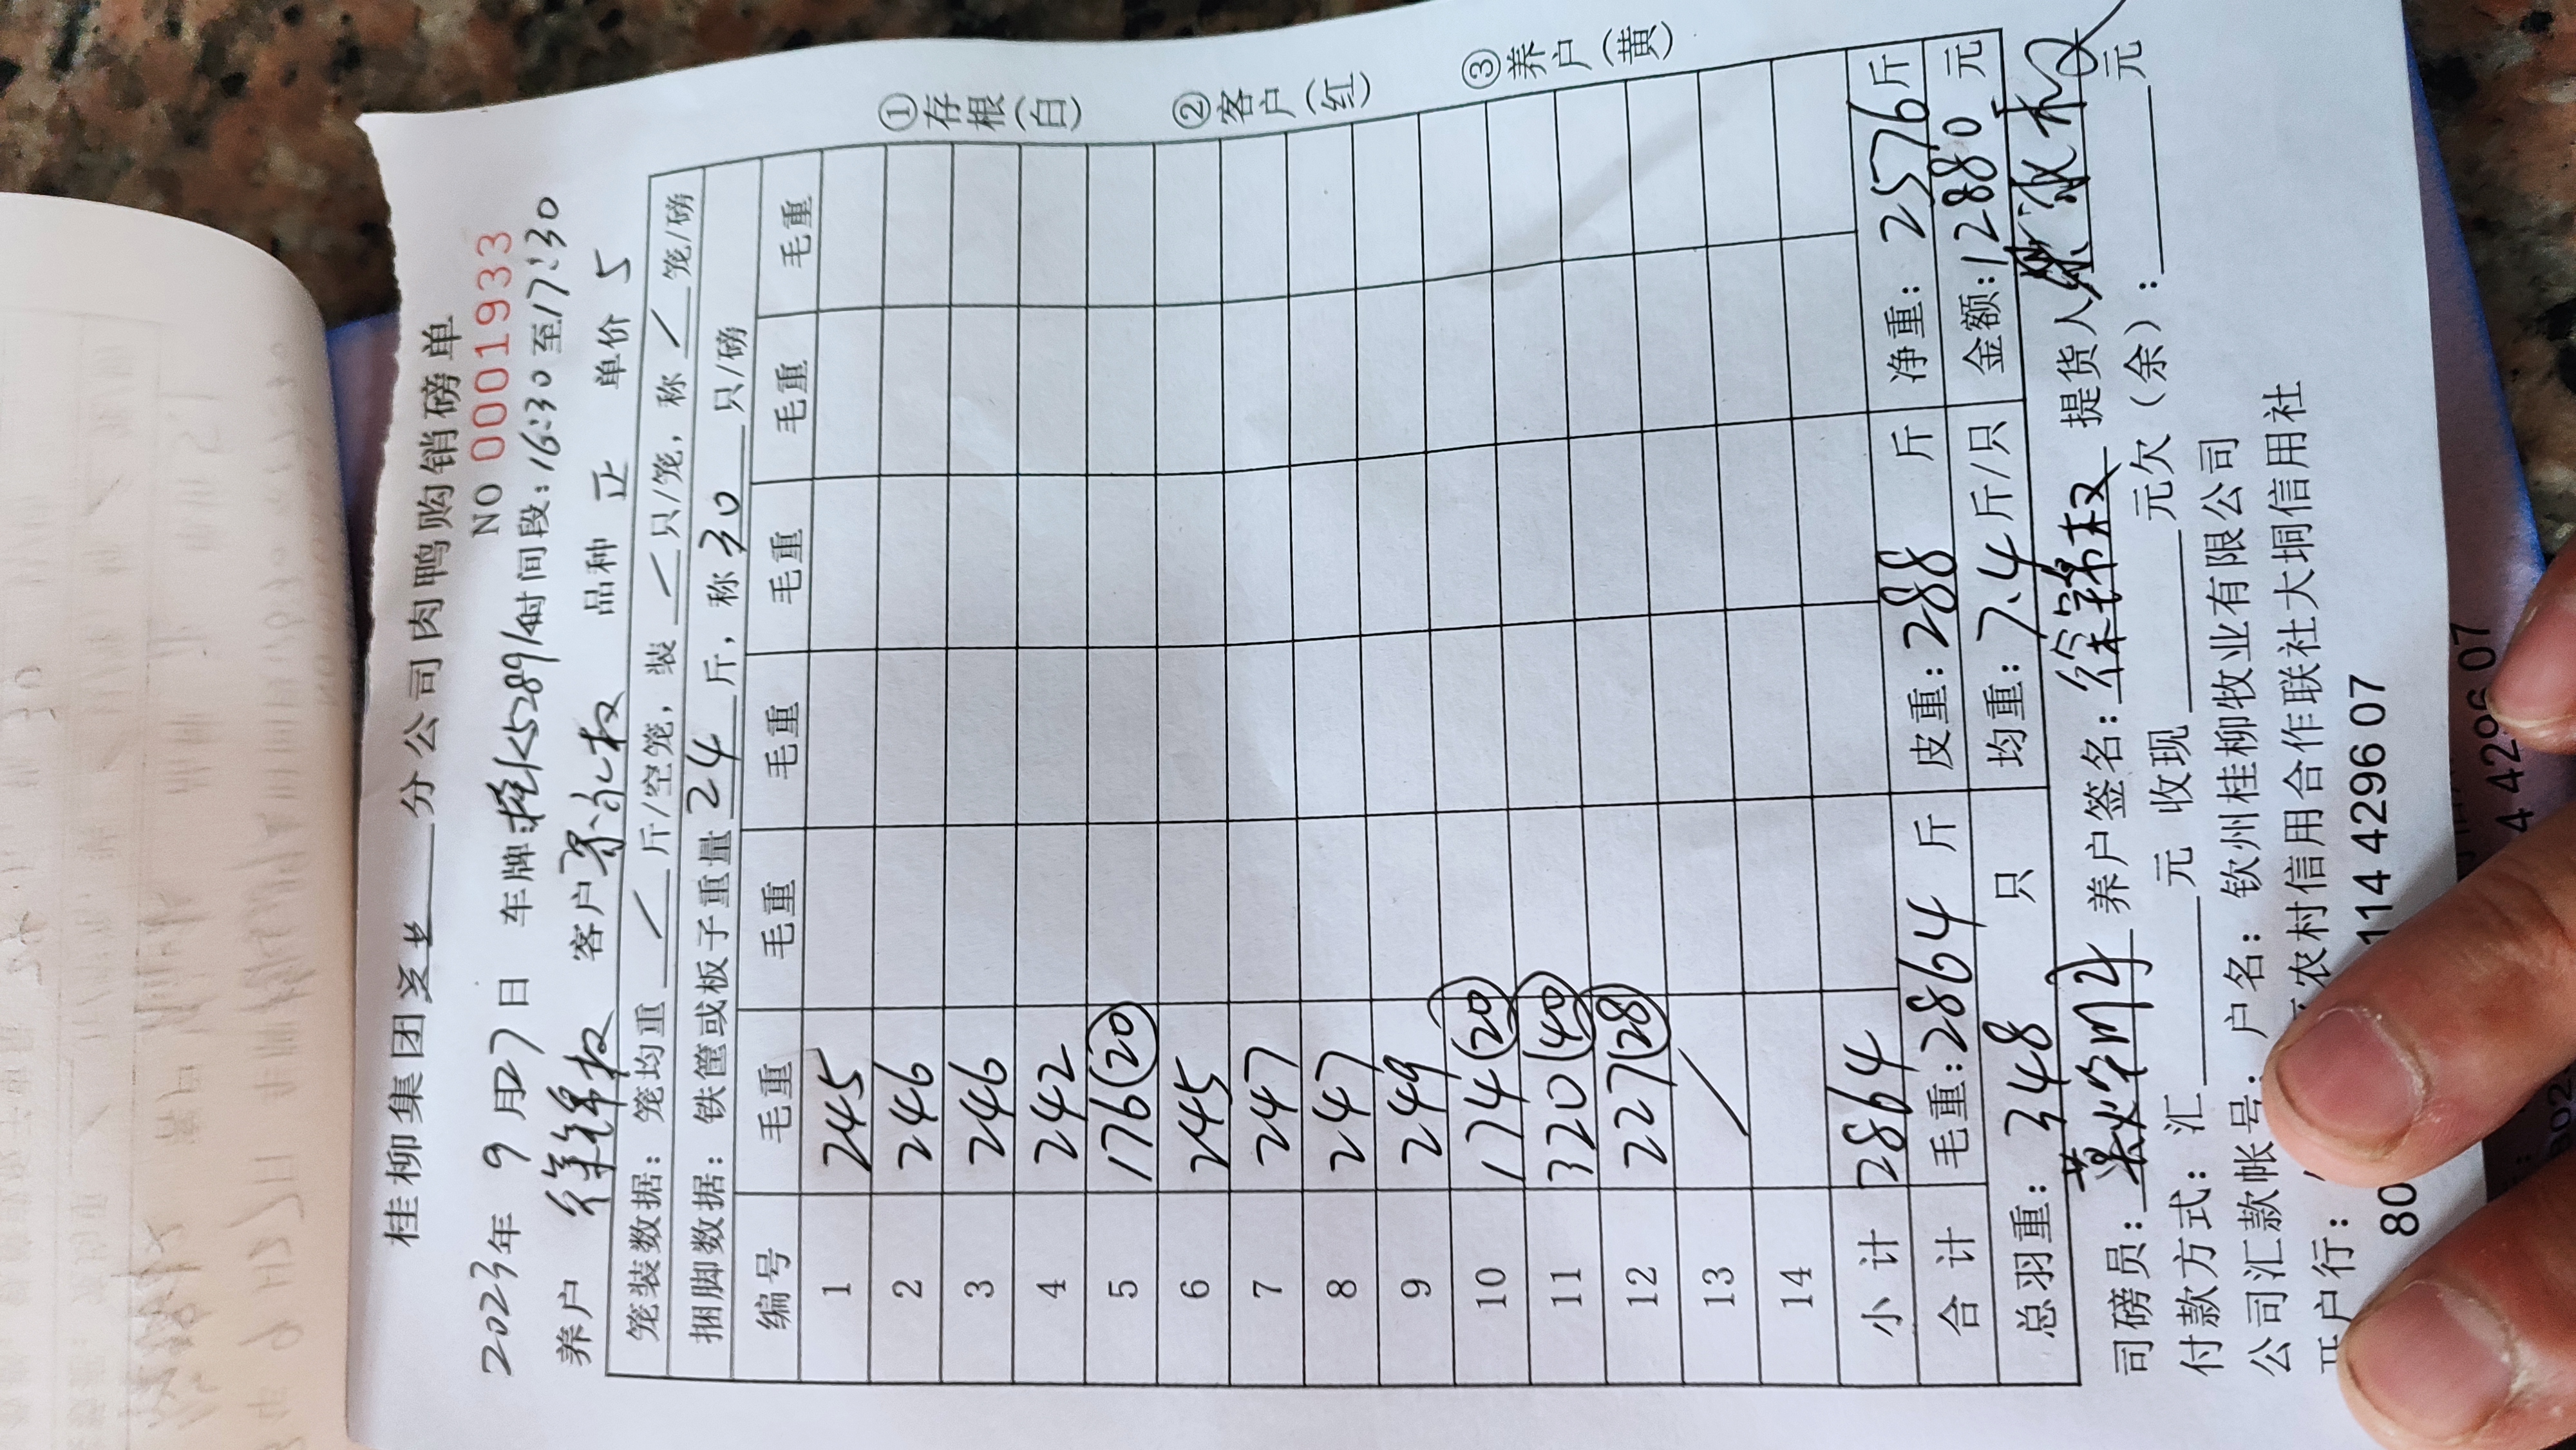 桂柳集团 分公司肉鸭购销磅单
NO 0001933
2023年 9月27日 车牌:桂K5289 时间段:16:30至17:30
养户 徐锦权 客户 品种 正 单价 5
笼装数据:笼均重 / 斤/空笼,装 / 只/笼,称 / 笼/磅
捆脚数据:铁筐或板子重量 24 斤,称 30 只/磅
编号 毛重 毛重 毛重 毛重 毛重 毛重
1 245
2 246
3 246
4 242
5 176(20)
6 245
7 247
8 247
9 249
10 174(20)
11 320(40)
12 227(28)
13 /
14
小计 2864
合计 毛重:2864斤 皮重:288斤 净重:2576斤
总羽重:348只 均重:7.4斤/只 金额:12880元
司磅员: 养户签名:徐锦权 提货人
付款方式:汇 元 收现 元欠(余): 元
公司汇款帐号:户名:钦州桂柳牧业有限公司
开户行: 农村信用合作联社大垌信用社
80 114 4296 07
①存根(白) ②客户(红) ③养户(黄)
4 4296 07